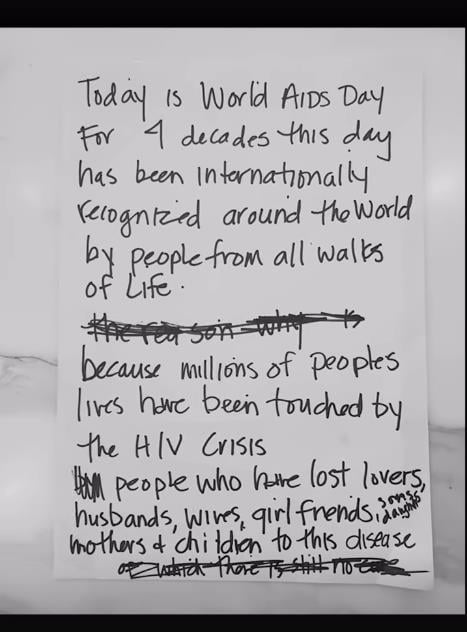 Today is World AIDS Day
For 4 decades this day
has been internationally
recognized around the World
by people from all walks
of Life.
the reason why is
because millions of peoples
lives have been touched by
the HIV Crisis
people who have lost lovers,
husbands, wives, girlfriends, sons & daughters
mothers & children to this disease
of which there is still no cure